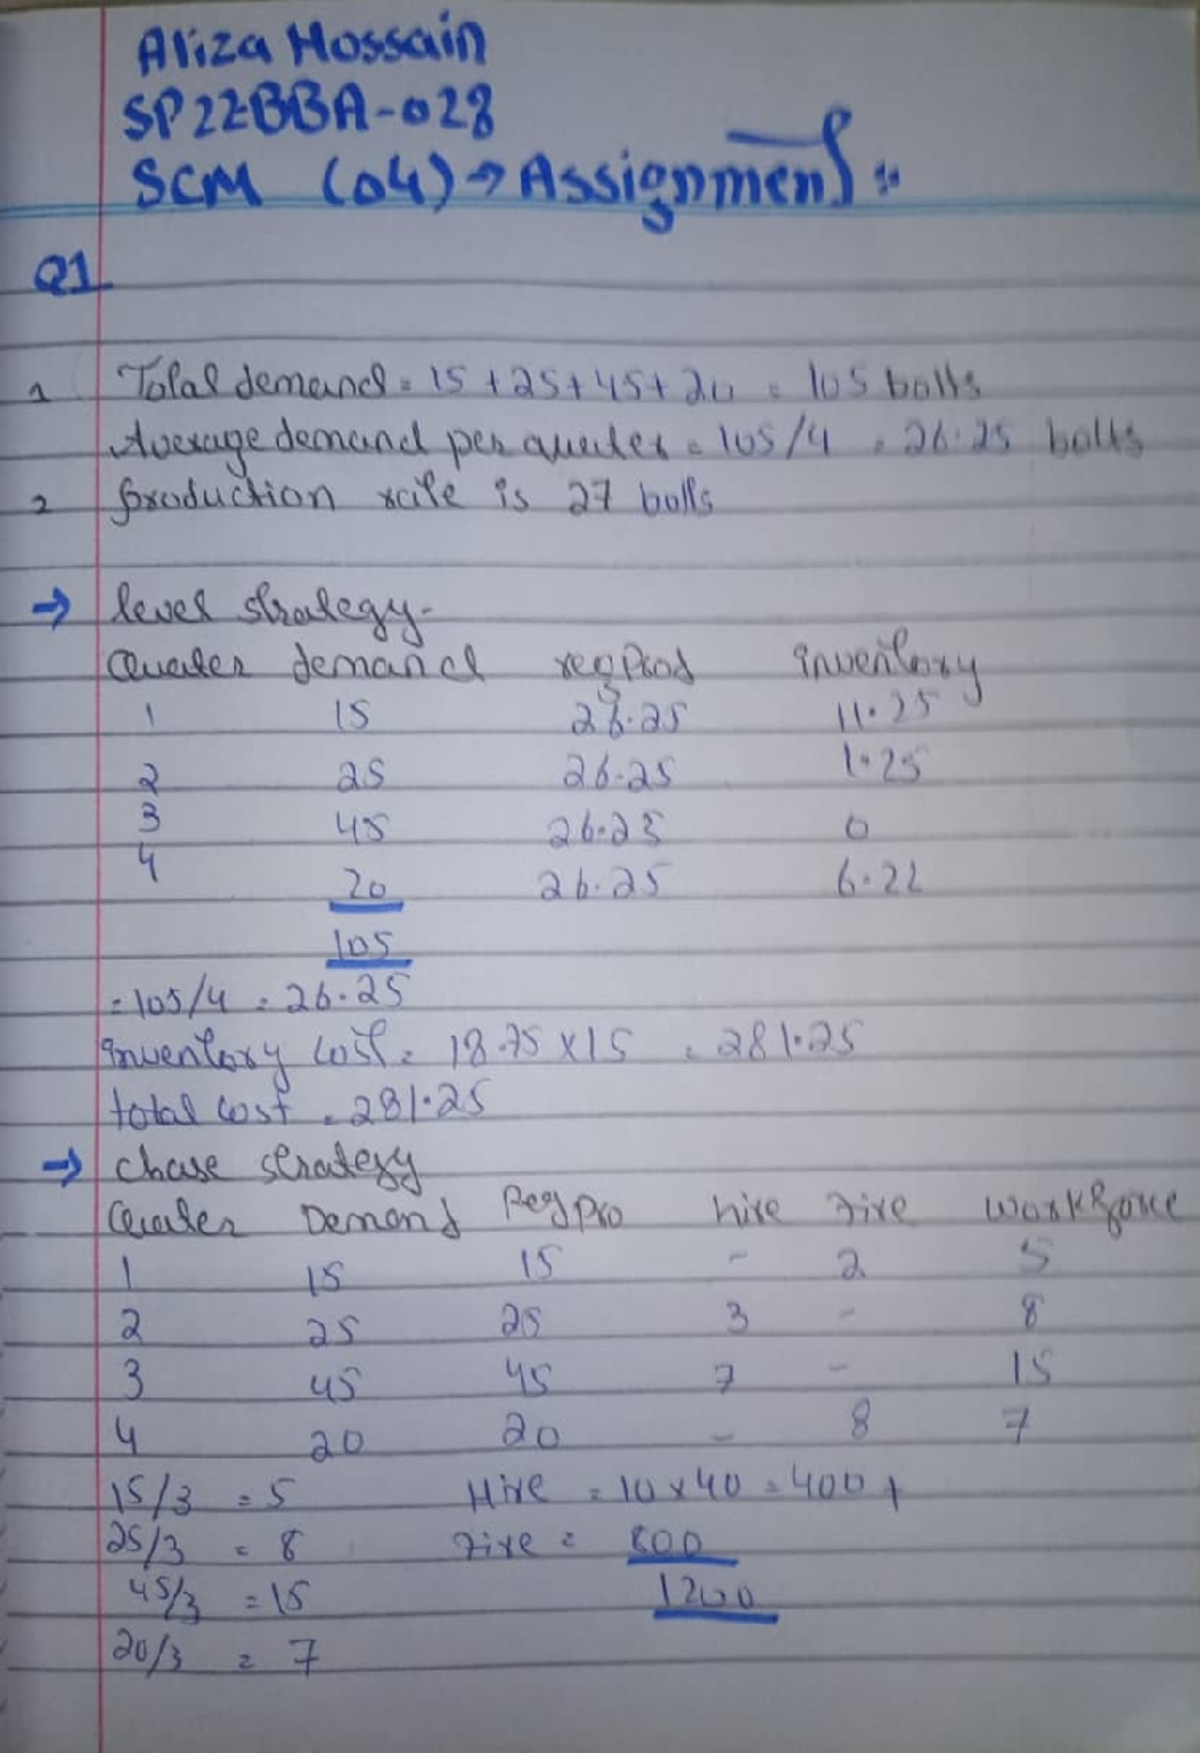 Aliza Hossain
SP22BBA-028
SCM (04) → Assignment :
Q1
1 Total demand = 15 + 25 + 45 + 20 = 105 bolts
Average demand per quater = 105/4 = 26.25 bolts
2 production rate is 27 bolts
→ level strategy-
Quater demand regProd inventory
1 15 26.25 11.25
2 25 26.25 1.25
3 45 26.25 0
4 20 26.25 6.22
105
= 105/4 = 26.25
inventory cost = 18.75 x 15 = 281.25
total cost = 281.25
→ chase strategy
Quater Demand Reg Pro hire Fire Workforce
1 15 15 - 2 5
2 25 25 3 - 8
3 45 45 7 - 15
4 20 20 - 8 7
15/3 = 5 Hire = 10 x 40 = 400 +
25/3 = 8 Fire = 800
45/3 = 15 1200
20/3 = 7